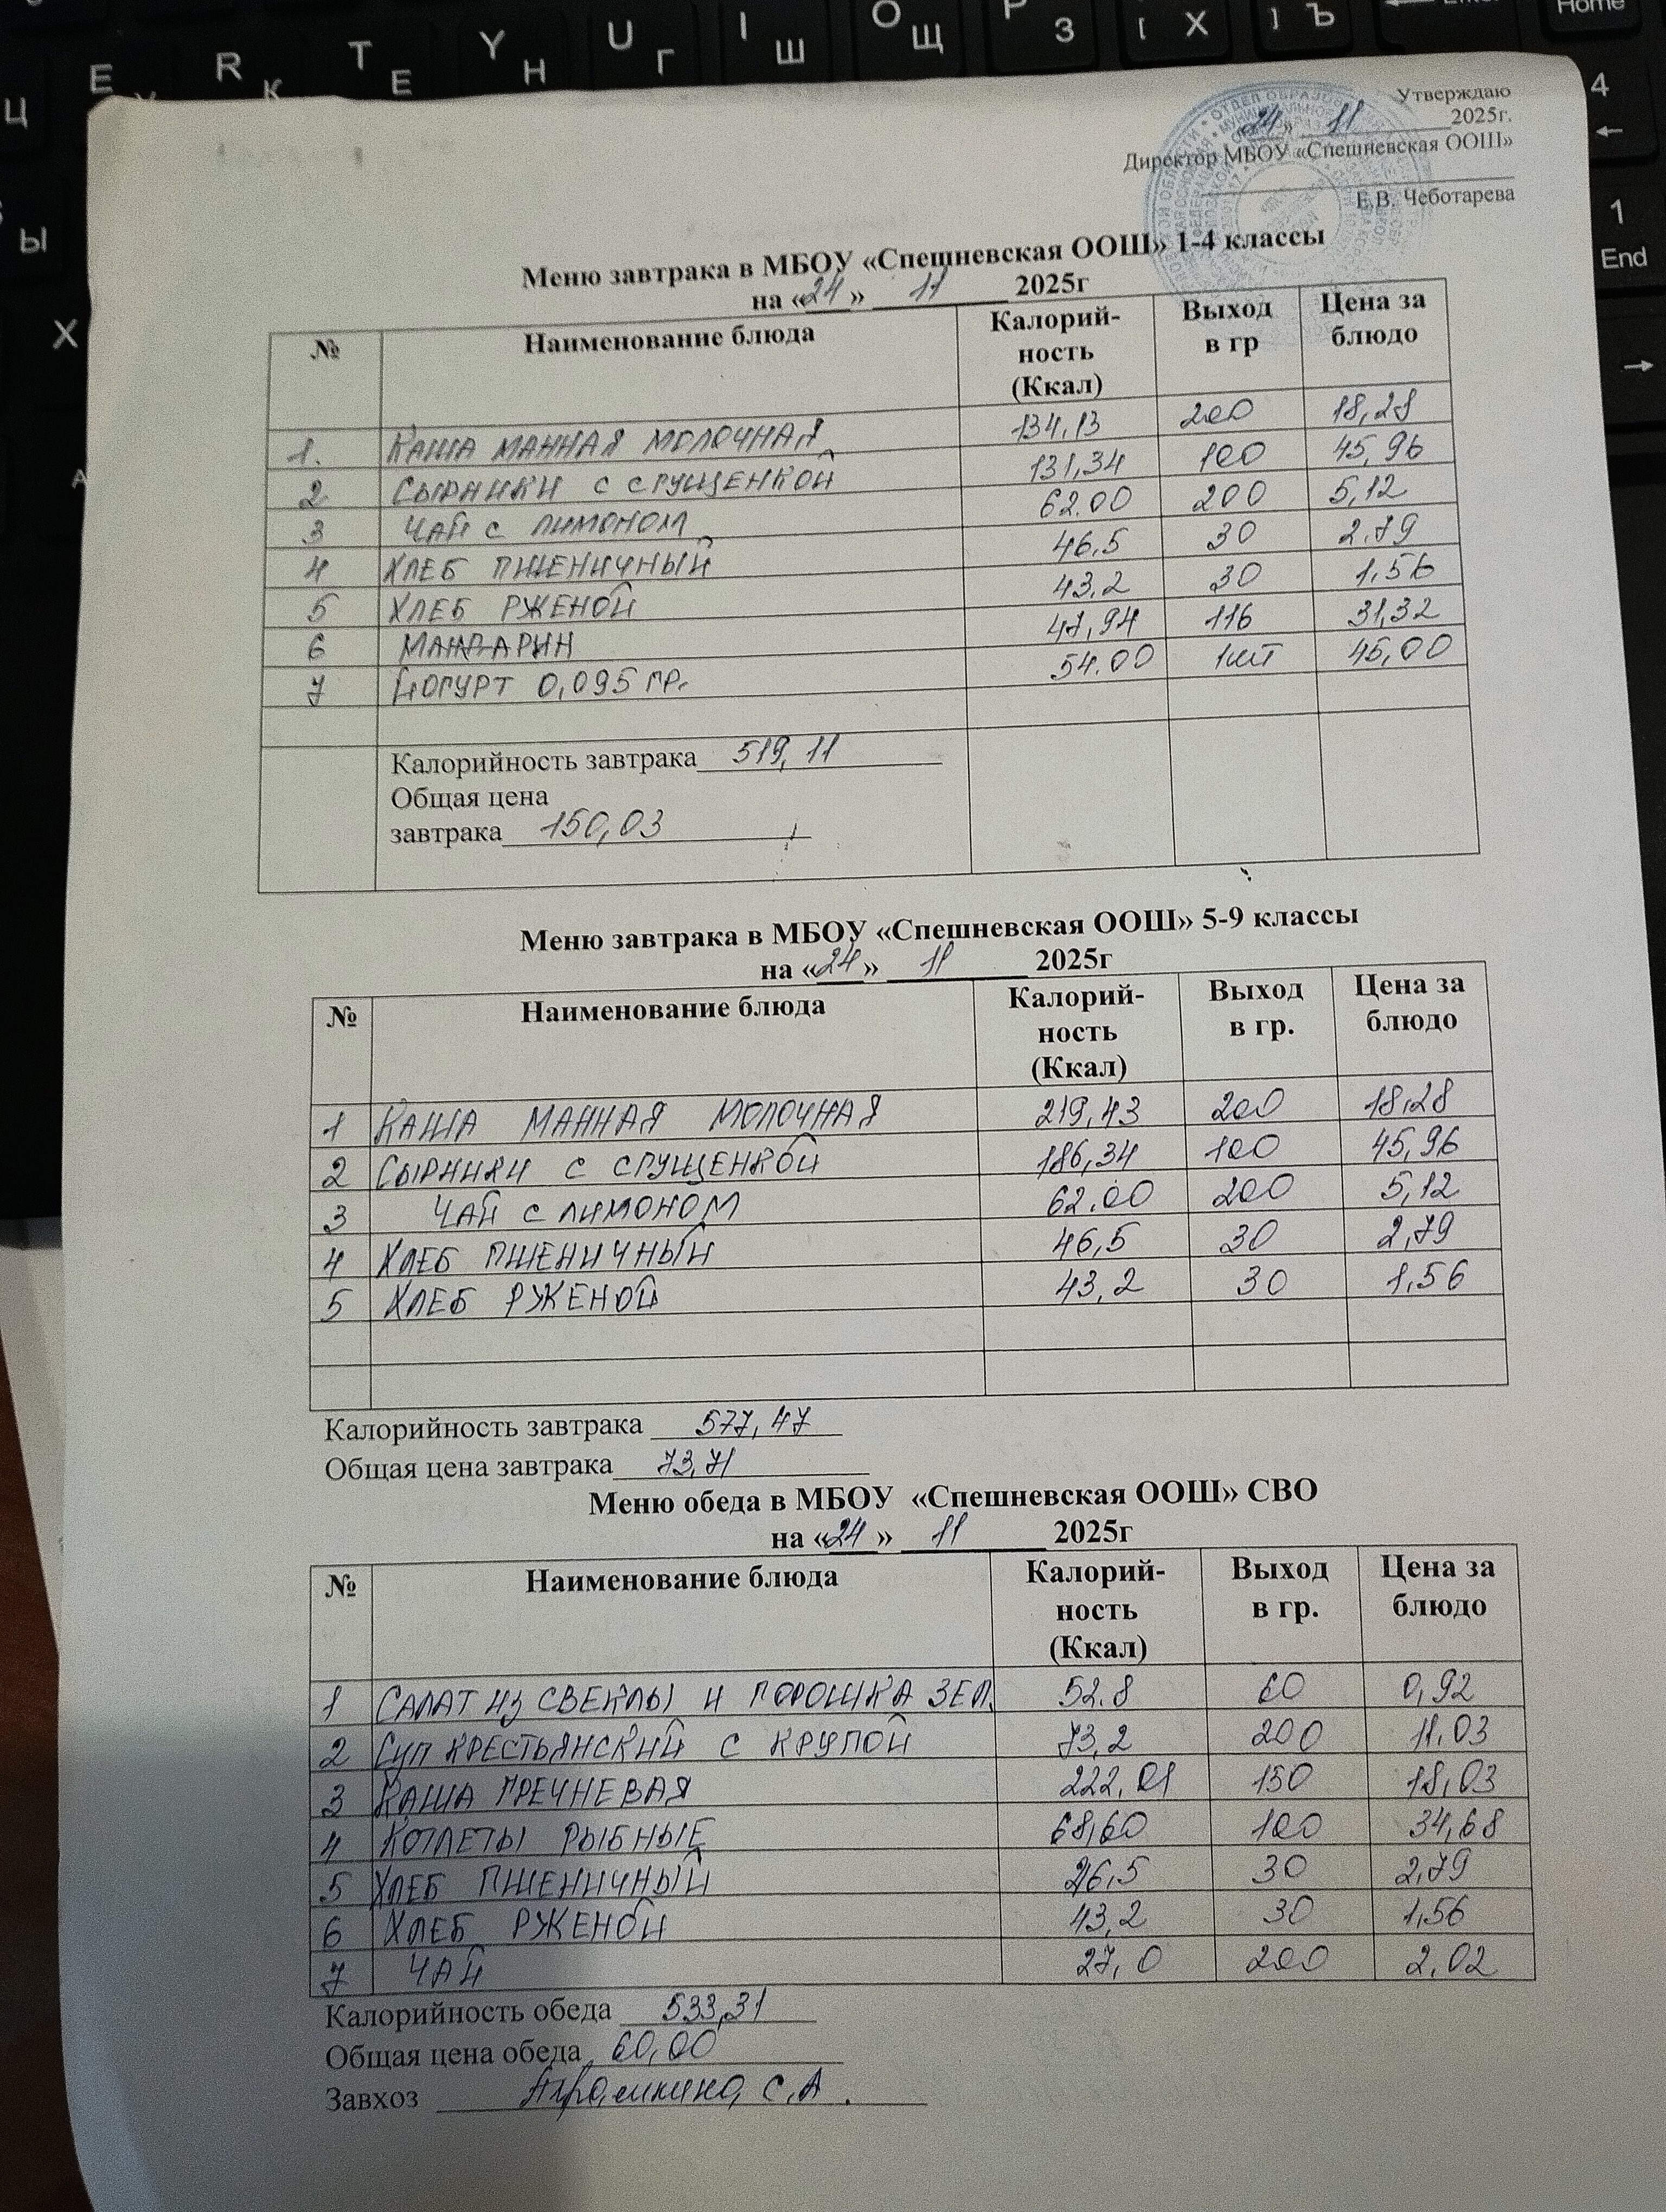 Утверждаю
«24» 11 2025г.
Директор МБОУ «Спешневская ООШ»
Е.В. Чеботарева
Меню завтрака в МБОУ «Спешневская ООШ» 1-4 классы
на «24» 11 2025г
№ Наименование блюда Калорий-ность (Ккал) Выход в гр Цена за блюдо
1. КАША МАННАЯ МОЛОЧНАЯ 134,13 200 18,28
2 СЫРНИКИ С СГУЩЕНКОЙ 131,34 100 45,96
3 ЧАЙ С ЛИМОНОМ 62.00 200 5,12
4 ХЛЕБ ПШЕНИЧНЫЙ 46,5 30 2,79
5 ХЛЕБ РЖЕНОЙ 43,2 30 1,56
6 МАНДАРИН 47,94 116 31,32
7 ЙОГУРТ 0,095 ГР. 54.00 1шт 45,00
Калорийность завтрака 519,11
Общая цена
завтрака 150,03
Меню завтрака в МБОУ «Спешневская ООШ» 5-9 классы
на «24» 11 2025г
№ Наименование блюда Калорий-ность (Ккал) Выход в гр. Цена за блюдо
1 КАША МАННАЯ МОЛОЧНАЯ 219,43 200 18,28
2 СЫРНИКИ С СГУЩЕНКОЙ 186,34 100 45,96
3 ЧАЙ С ЛИМОНОМ 62.00 200 5,12
4 ХЛЕБ ПШЕНИЧНЫЙ 46,5 30 2,79
5 ХЛЕБ РЖЕНОЙ 43,2 30 1,56
Калорийность завтрака 577,47
Общая цена завтрака 73,71
Меню обеда в МБОУ «Спешневская ООШ» СВО
на «24» 11 2025г
№ Наименование блюда Калорий-ность (Ккал) Выход в гр. Цена за блюдо
1 САЛАТ ИЗ СВЕКЛЫ И ГОРОШКА ЗЕЛ. 52.8 60 0,92
2 СУП КРЕСТЬЯНСКИЙ С КРУПОЙ 73,2 200 11.03
3 КАША ГРЕЧНЕВАЯ 222,01 150 18,03
4 КОТЛЕТЫ РЫБНЫЕ 68,60 100 34,68
5 ХЛЕБ ПШЕНИЧНЫЙ 46,5 30 2,79
6 ХЛЕБ РЖЕНОЙ 43,2 30 1,56
7 ЧАЙ 27,0 200 2,02
Калорийность обеда 533,31
Общая цена обеда 60,00
Завхоз С.А.